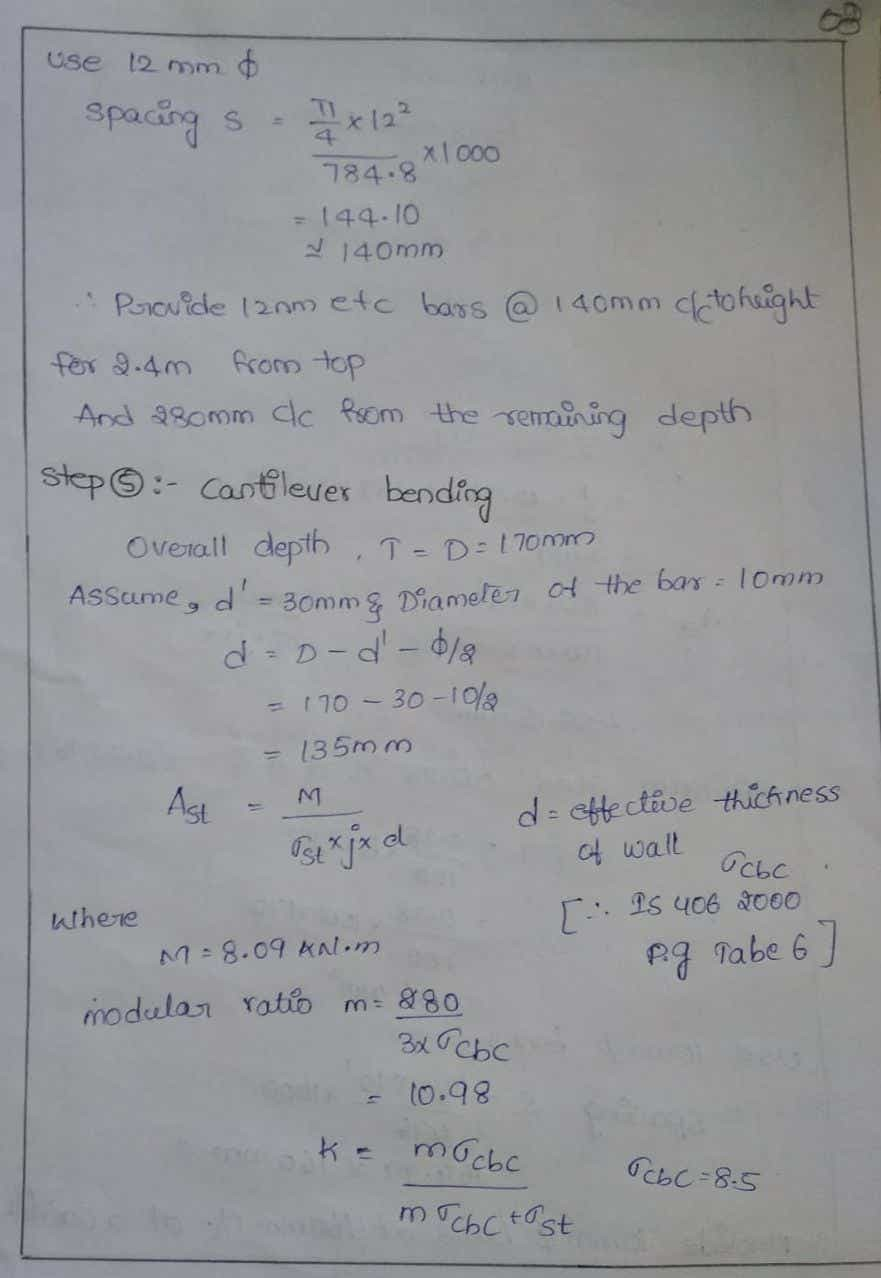 08
Use 12 mm ϕ
Spacing s = π/4 × 12² / 784.8 × 1000
= 144.10
≃ 140mm
∴ Provide 12nm etc bars @ 140mm c/c to height
for 2.4m from top
And 280mm c/c from the remaining depth
Step ⑤ :- Cantilever bending
Overall depth, T = D = 170mm
Assume, d' = 30mm & Diameter of the bar = 10mm
d = D - d' - ϕ/2
= 170 - 30 - 10/2
= 135mm
Ast = M / σst × j × d
d = effective thickness
of wall
σcbc
[∴ IS 406 2000
P.g Tabe 6]
Where
M = 8.09 KN.m
modular ratio m = 280 / 3xσcbc
= 10.98
k = mσcbc / mσcbc + σst
σcbc = 8.5